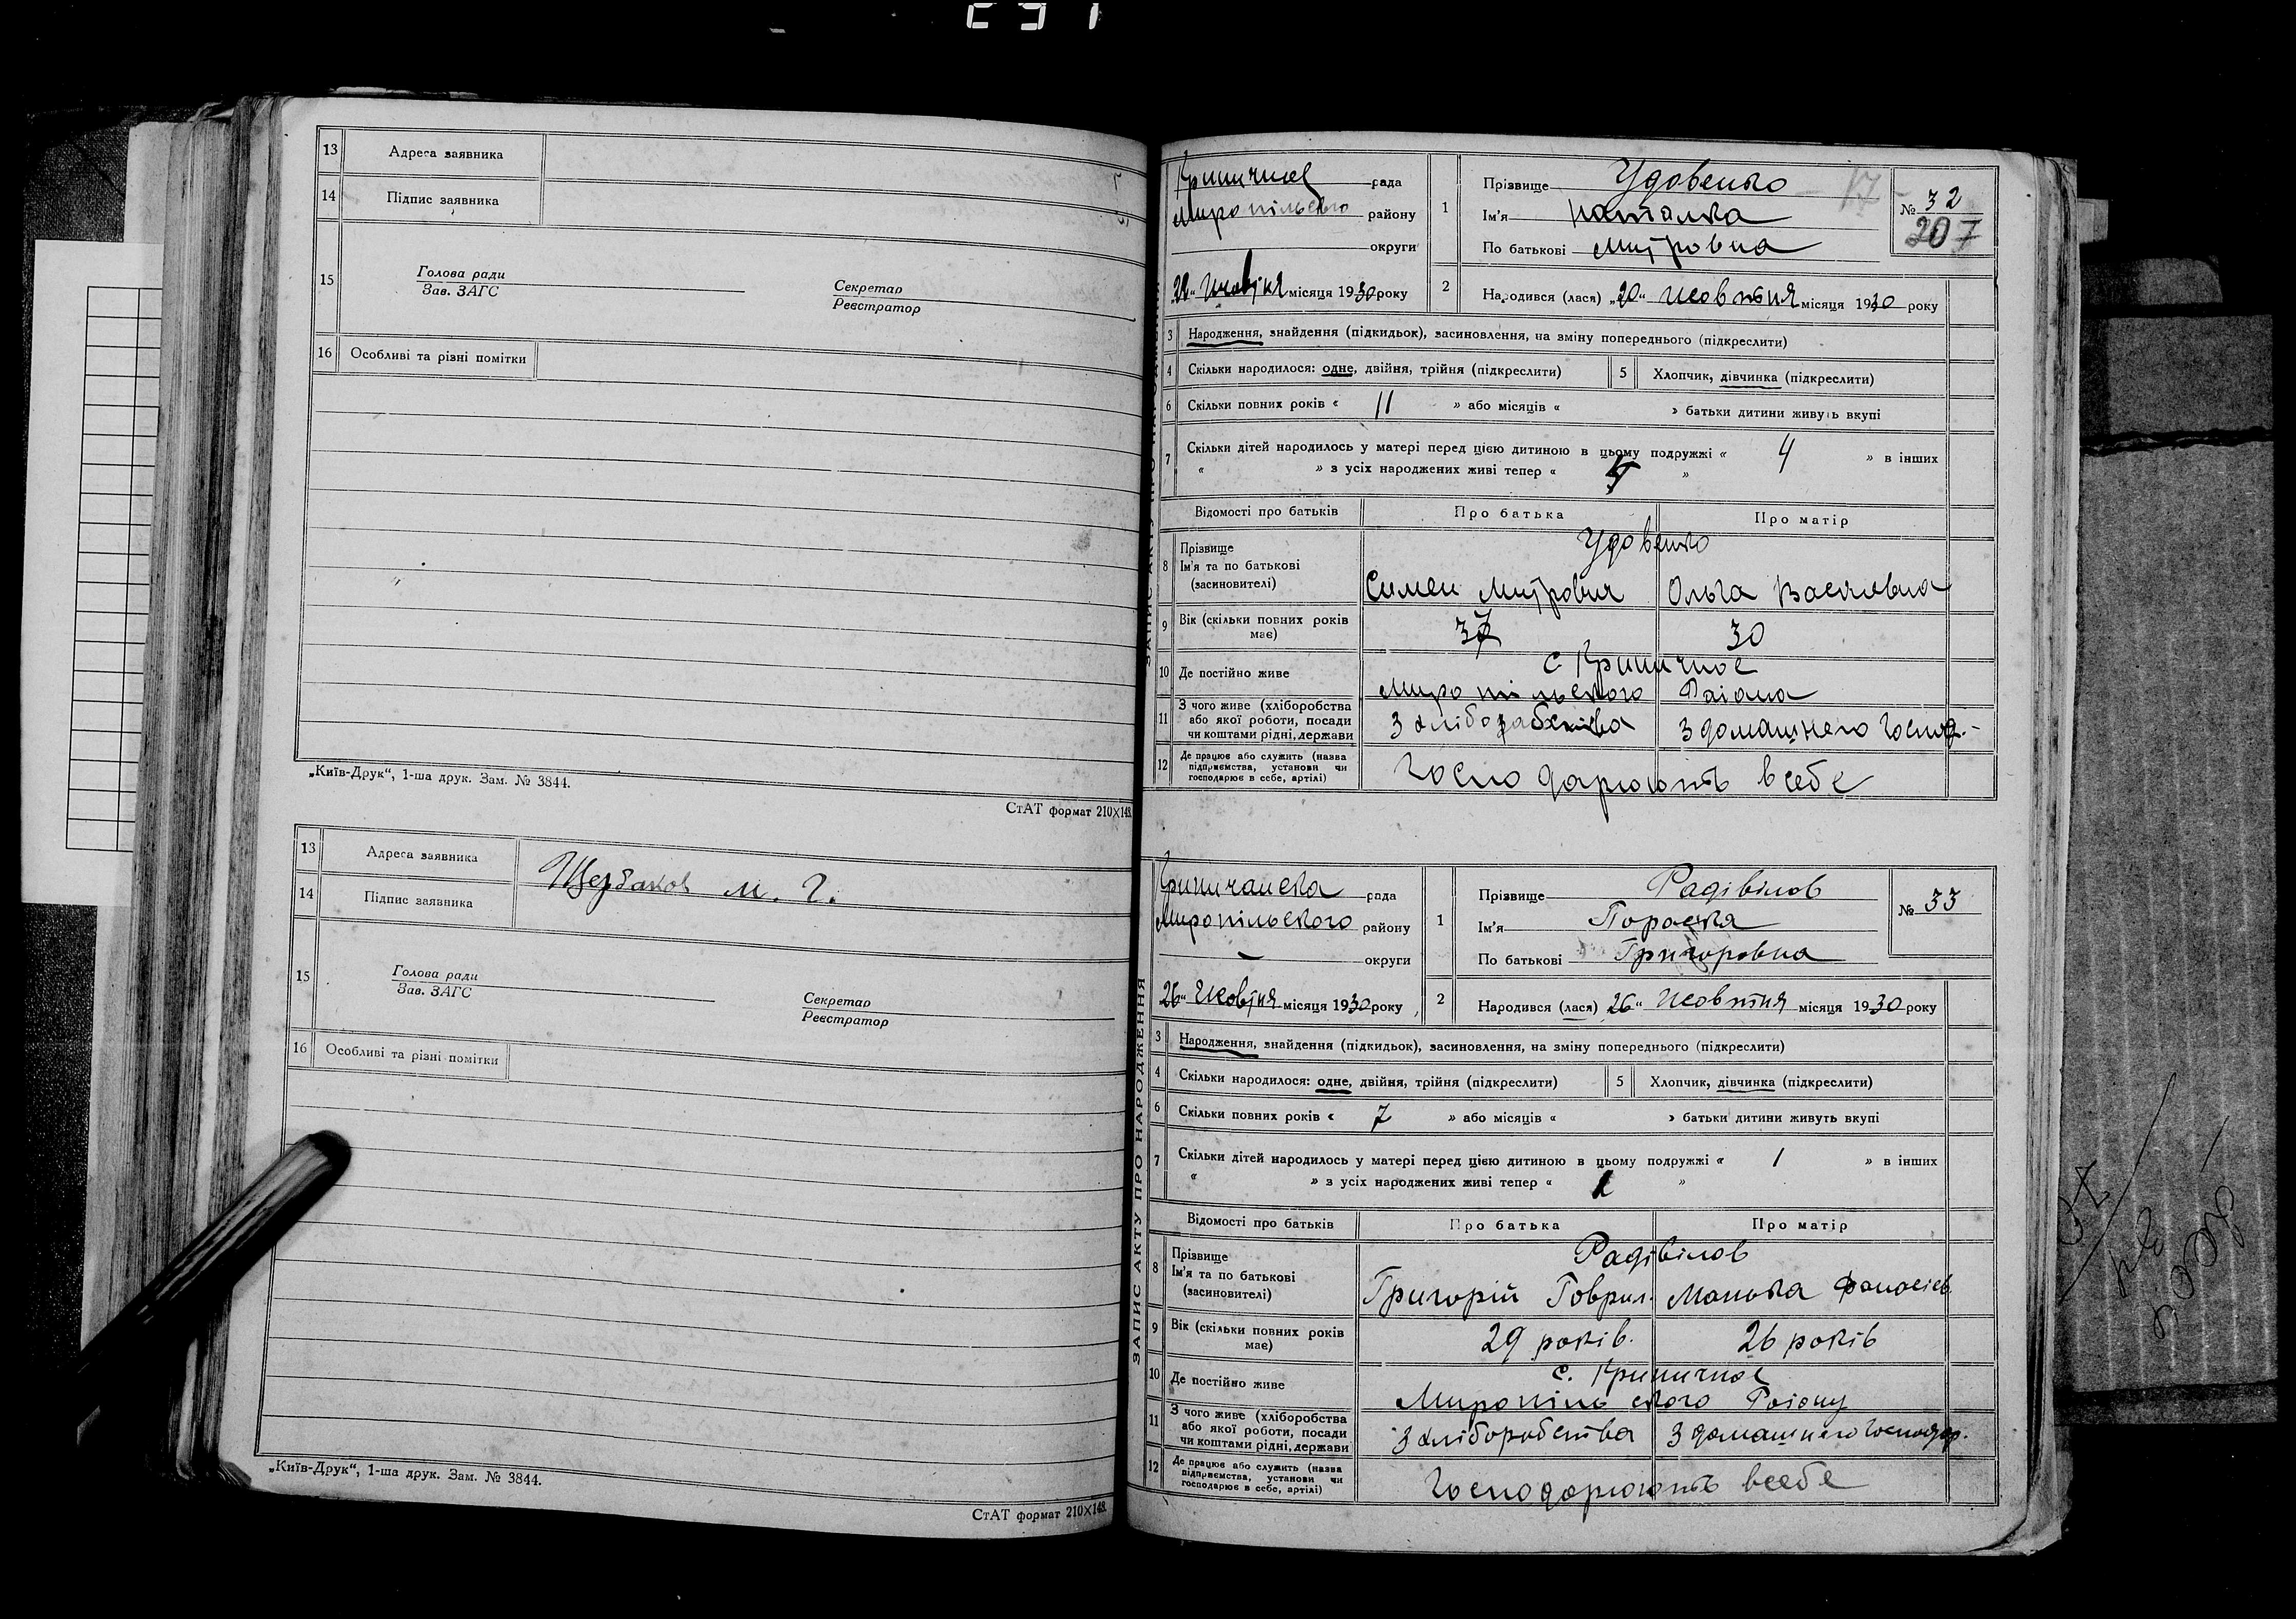 13 Адреса заявника
14 Підпис заявника
15 Голова ради
Зав. ЗАГС
Секретар
Реєстратор
16 Особливі та різні помітки
„Київ-Друк“, 1-ша друк. Зам. № 3844.
СтАТ формат 210×148.
13 Адреса заявника
Щербаков М. Г.
14 Підпис заявника
15 Голова ради
Зав. ЗАГС
Секретар
Реєстратор
16 Особливі та різні помітки
„Київ-Друк“, 1-ша друк. Зам. № 3844.
СтАТ формат 210×148.
рада
Миропільського району
округи
22 Жовтня місяця 1930 року
1 Прізвище Удовенко
Ім'я Наталка
По батькові Митровна
№ 32
207
2 Народився (лася) „20“ Жовтня місяця 1930 року
3 Народження, знайдення (підкидьок), засиновлення, на зміну попереднього (підкреслити)
4 Скільки народилося: одне, двійня, трійня (підкреслити) 5 Хлопчик, дівчинка (підкреслити)
6 Скільки повних років « 11 » або місяців « » батьки дитини живуть вкупі
7 Скільки дітей народилось у матері перед цією дитиною в цьому подружжі « 4 » в інших
« » з усіх народжених живі тепер « »
Відомості про батьків Про батька Про матір
8 Прізвище Удовенко
Ім'я та по батькові
(засиновителі) Семен Митрович Ольга Василевна
9 Вік (скільки повних років має) 37 30
10 Де постійно живе с Криничное
Миропільского Раіона
11 З чого живе (хліборобства або якої роботи, посади чи коштами рідні, держави З хліборабства З домашнего господ.-
12 Де працює або служить (назва підприємства, установи чи господарює в себе, артілі) Господарюють всебе
ЗАПИС АКТУ ПРО НАРОДЖЕННЯ
Криничанска рада
Миропільского району
— округи
„26“ Жовтня місяця 1930 року
1 Прізвище Радівілов
Ім'я Пораска
По батькові Григоровна
№ 33
2 Народився (лася) „26“ Жовтня місяця 1930 року
3 Народження, знайдення (підкидьок), засиновлення, на зміну попереднього (підкреслити)
4 Скільки народилося: одне, двійня, трійня (підкреслити) 5 Хлопчик, дівчинка (підкреслити)
6 Скільки повних років « 7 » або місяців « » батьки дитини живуть вкупі
7 Скільки дітей народилось у матері перед цією дитиною в цьому подружжі « 1 » в інших
« » з усіх народжених живі тепер « »
Відомості про батьків Про батька Про матір
8 Прізвище Радівілов
Ім'я та по батькові
(засиновителі) Григорій Говрил. Манька Фанасіев
9 Вік (скільки повних років має) 29 років. 26 років
10 Де постійно живе с. Криничное
Миропільского Роіону
11 З чого живе (хліборобства або якої роботи, посади чи коштами рідні, держави З хліборобства З домашнего господар.
12 Де працює або служить (назва підприємства, установи чи господарює в себе, артілі) Господорюють всебе
ЗАПИС АКТУ ПРО НАРОДЖЕННЯ